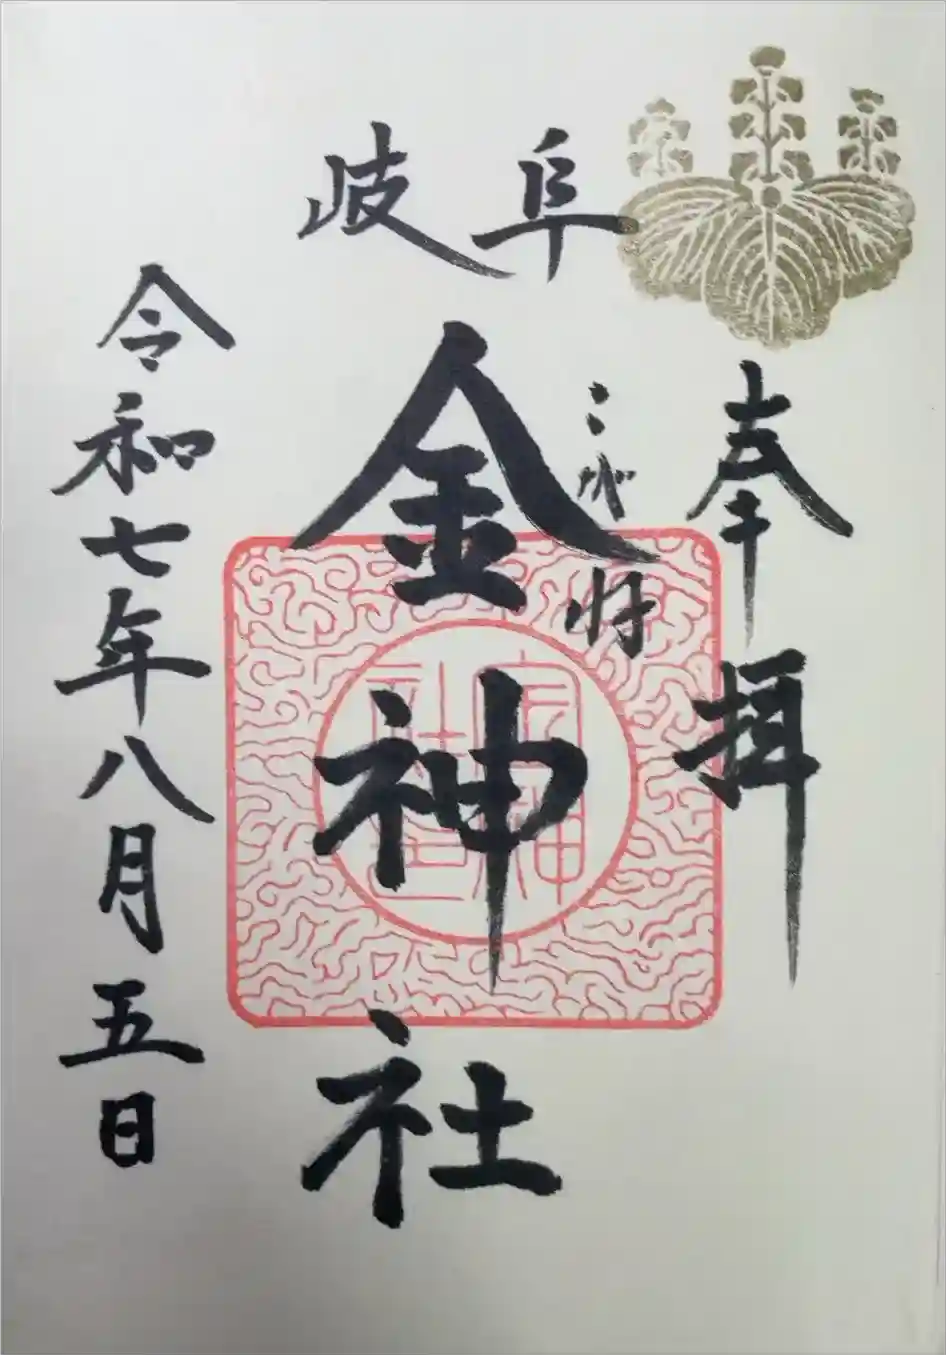 奉拝
岐阜
金神社
令和七年八月五日